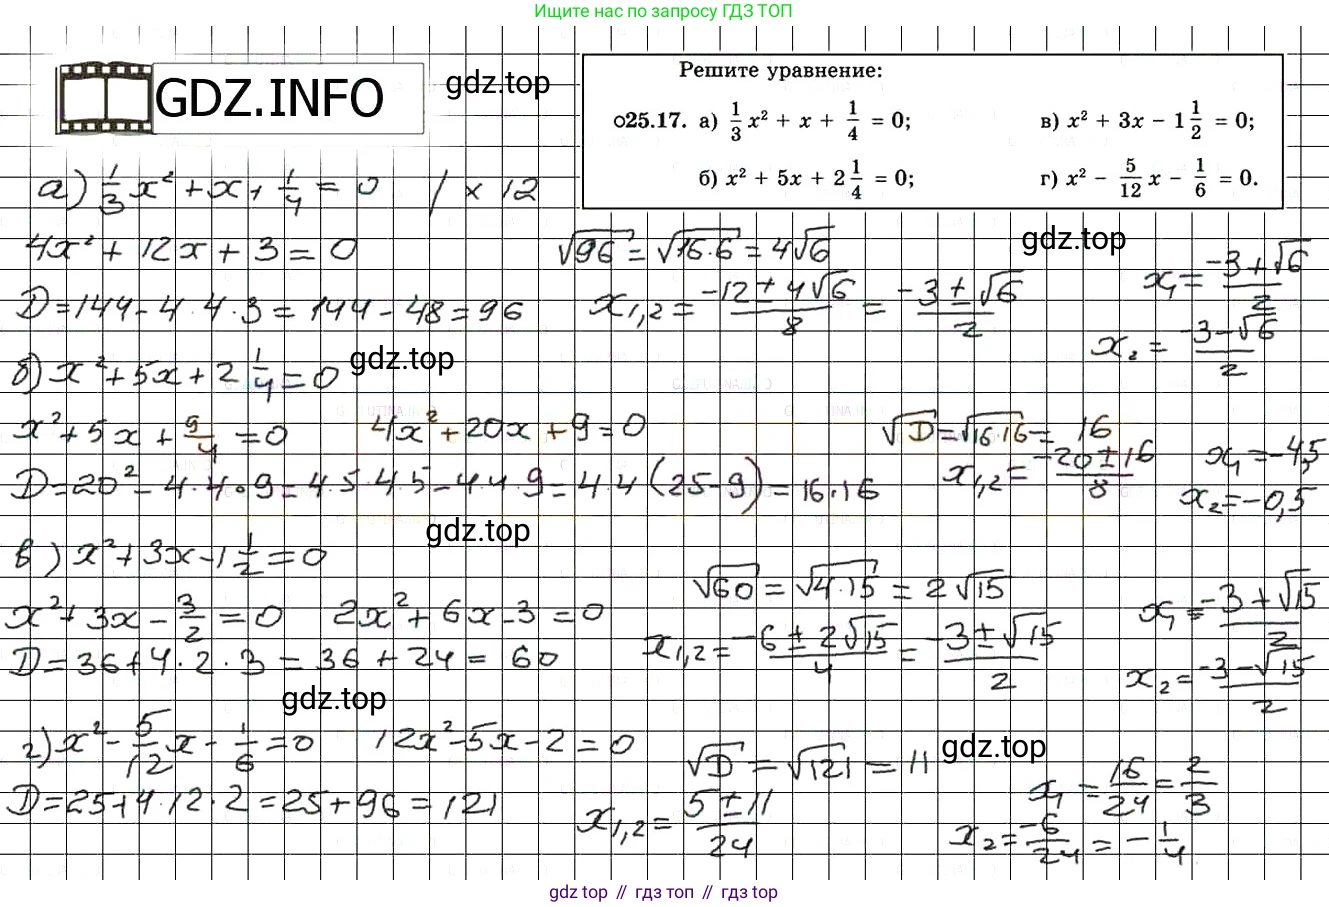 Ищите нас по запросу ГДЗ ТОП
GDZ.INFO
gdz.top
Решите уравнение:
о25.17. а) 1/3 x² + x + 1/4 = 0;
в) x² + 3x − 1 1/2 = 0;
б) x² + 5x + 2 1/4 = 0;
г) x² − 5/12 x − 1/6 = 0.
а) 1/3 x² + x + 1/4 = 0 / × 12
4x² + 12x + 3 = 0
√96 = √16·6 = 4√6
gdz.top
D = 144 − 4·4·3 = 144 − 48 = 96
x₁,₂ = (−12 ± 4√6)/8 = (−3 ± √6)/2
x₁ = (−3 + √6)/2
x₂ = (−3 − √6)/2
б) x² + 5x + 2 1/4 = 0
gdz.top
x² + 5x + 9/4 = 0
4x² + 20x + 9 = 0
√D = √16·16 = 16
D = 20² − 4·4·9 = 4·5·4·5 − 4·4·9 = 4·4(25−9) = 16·16
x₁,₂ = (−20 ± 16)/8
x₁ = −4,5
x₂ = −0,5
gdz.top
в) x² + 3x − 1 1/2 = 0
√60 = √4·15 = 2√15
x² + 3x − 3/2 = 0
2x² + 6x − 3 = 0
D = 36 + 4·2·3 = 36 + 24 = 60
x₁,₂ = (−6 ± 2√15)/4 = (−3 ± √15)/2
x₁ = (−3 + √15)/2
x₂ = (−3 − √15)/2
gdz.top
г) x² − 5/12 x − 1/6 = 0
12x² − 5x − 2 = 0
√D = √121 = 11
gdz.top
D = 25 + 4·12·2 = 25 + 96 = 121
x₁,₂ = (5 ± 11)/24
x₁ = 16/24 = 2/3
x₂ = −6/24 = −1/4
gdz top // гдз топ // gdz top